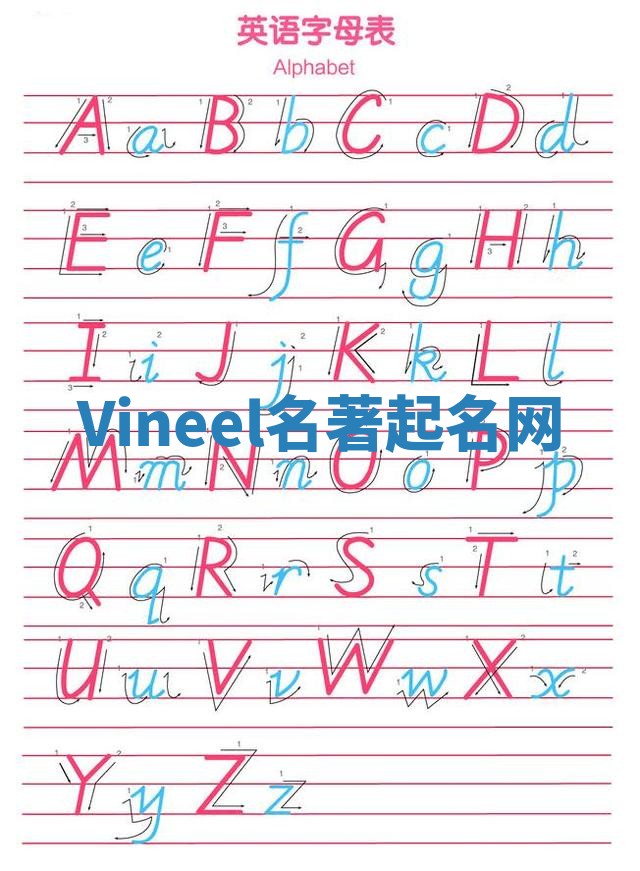 英语字母表
Alphabet
A a B b C c D d
E e F f G g H h
I i J j K k L l
Vineel名著起名网
M m N n O o P p
Q q R r S s T t
U u V v W w X x
Y y Z z